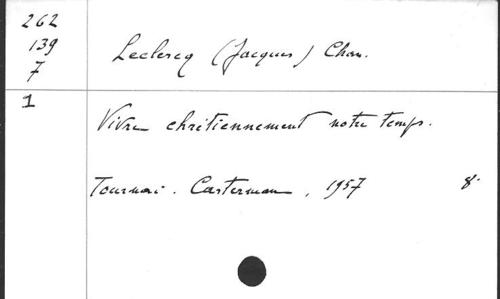 262
139
7
Leclercq (Jacques) Chan.
1
Vivre chrétiennement notre temps.
Tournai. Casterman, 1957 8°